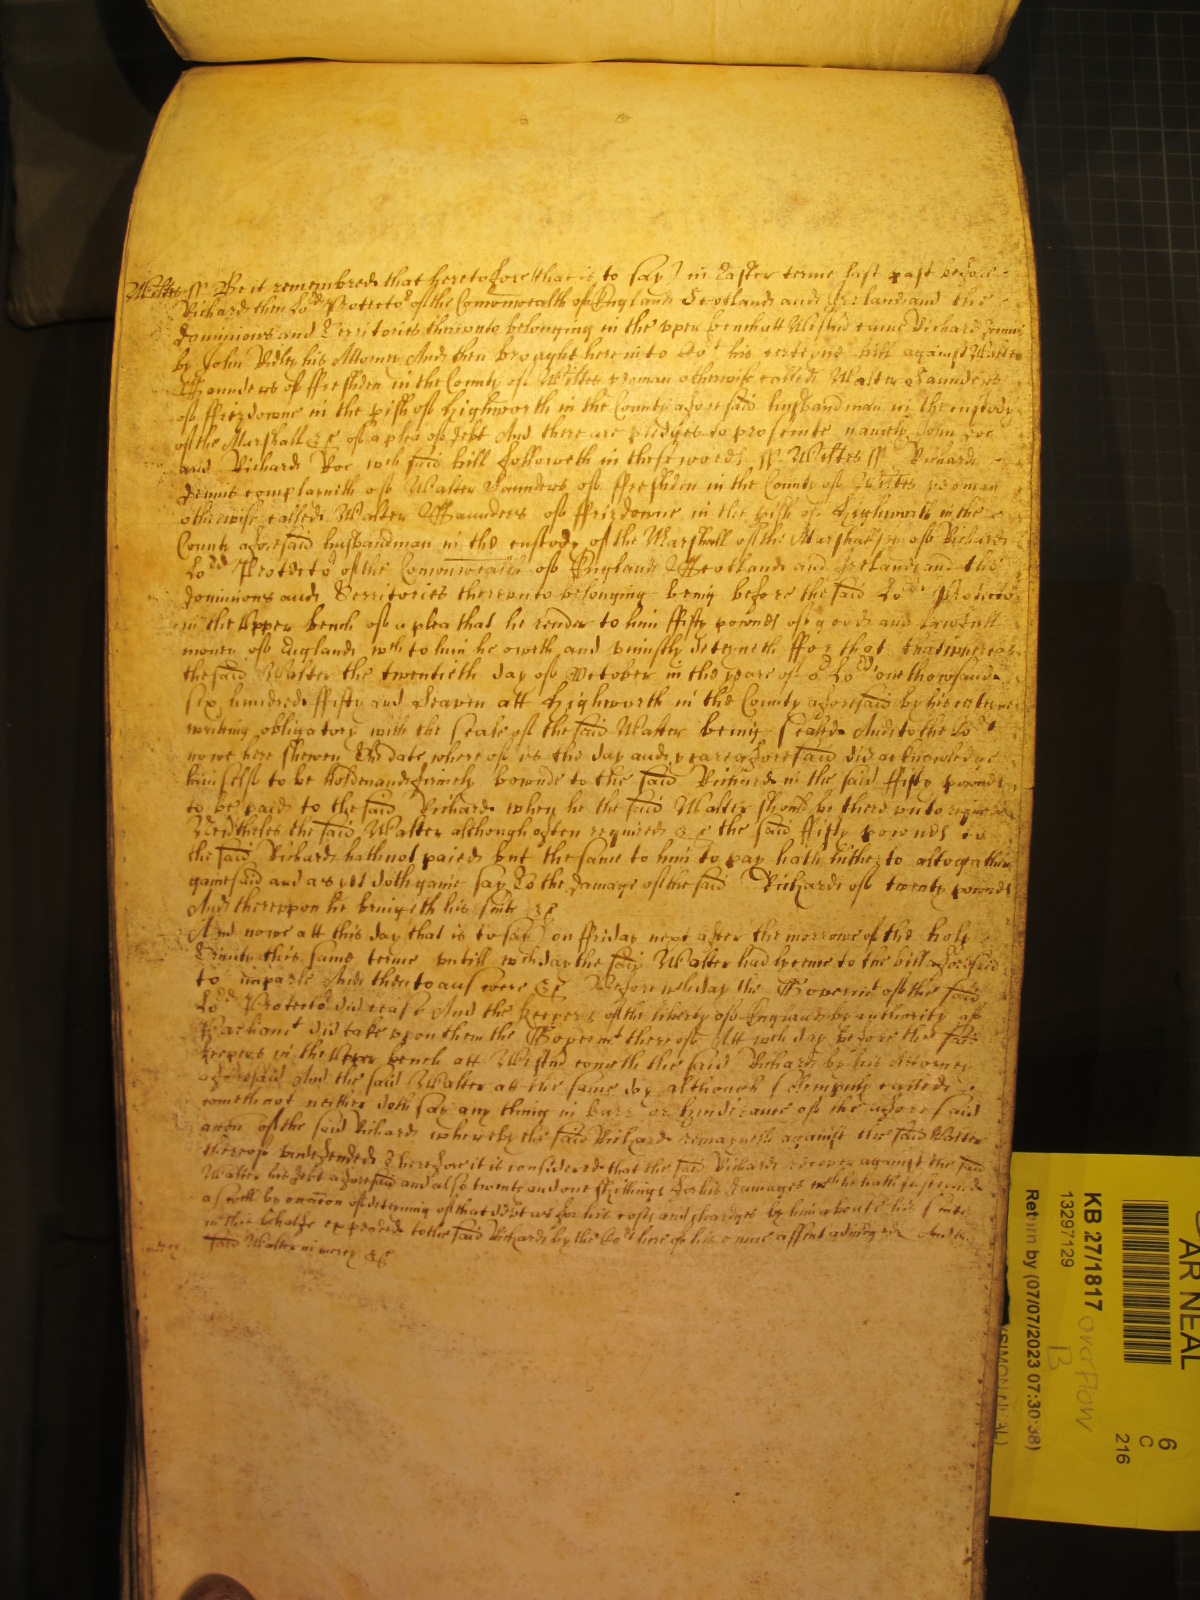 Wiltes ss Be it remembred that heretofore (that is to say) in Easter terme last past before
Richard then Lord Protector of the Comonwealth of England Scotland and Ireland and the
dominions and Territories thereunto belonging in the vpper bench att Westmr came Richard
by John his Attorney And then brought here into Cort his certeyne bill against Walter
Saunders of ffresden in the County of Wiltes yeoman otherwise called Walter Saunders
of in the pish of Highworth in the County aforesaid husbandman in the custody
of the Marshall &c of a plea of debt And there are pledges to prosecute namely John Doe
and Richard Roe wch said bill followeth in these words ss Wiltes ss Richard
complaineth of Walter Saunders of in the County of Wiltes yeoman
otherwise called Walter Saunders of in the pish of Highworth in the
County aforesaid husbandman in the custody of the Marshall of the Marshalsey of Richard
Lord Protector of the Comonwealth of England Scotland and Ireland and the
dominions and Territories thereunto belonging being before the said Lord Protector
in the vpper bench of a plea that he render to him ffifty pownds of good and lawfull
money of England wch to him he oweth and vniustly deteyneth ffor that that whereas
the said Walter the twentieth day of October in the yeare of or Lord one thowsand
six hundred ffifty and seaven att Highworth in the County aforesaid by his certeyne
writing obligatory with the seale of the said Walter being sealed And to the Cort
nowe here shewen the date whereof is the day and yeare aforesaid did acknowledge
himselfe to be holden and firmely bownde to the said Richard in the said ffifty pownds
to be paid to the said Richard when he the said Walter should be there vnto required
Neverthelesse the said Walter although often required &c the said ffifty pownds to
the said Richard hath not paied but the same to him to pay hath hitherto altogather
gainesaid and as yet doth gaine say To the damage of the said Richard of twenty pownds
And thereuppon he bringeth his suite &c
And nowe att this day that is to say on ffriday next after the morrowe of the holy
Trinity this same terme vntill wch day the said Walter had licence to the bill aforesaid
to imparle And then to answere &c Before wch day the Governmt of the said
Lord Protector did cease And the keepers of the liberty of England by authority of
Parliamt did take vpon them the Governmt thereof Att wch day before the said
keepers in the vpper bench att Westmr cometh the said Richard by his Attorney
aforesaid And the said Walter att the same day although solempnly called
cometh not neither doth say any thing in barr or hinderance of the aforesaid
accon of the said Richard whereby the said Richard remayneth against the said Walter
thereof vndefended Therefore it is considered that the said Richard recover against the said
Walter his debt aforesaid and also twenty and one shillings for his damages wch he hath susteined
as well by occacon of deteyning of that debt as for his costs and chardges by him about his suite
in this behalfe expended to the said Richard by the Cort here of his owne assent adiudged And the
said Walter in mercy &c
mercy
KB 27/1817
13297129
Return by (07/07/2023 07:30:38)
overflow
B
AR NEAL
(SIMON NEAL)
6
C
216